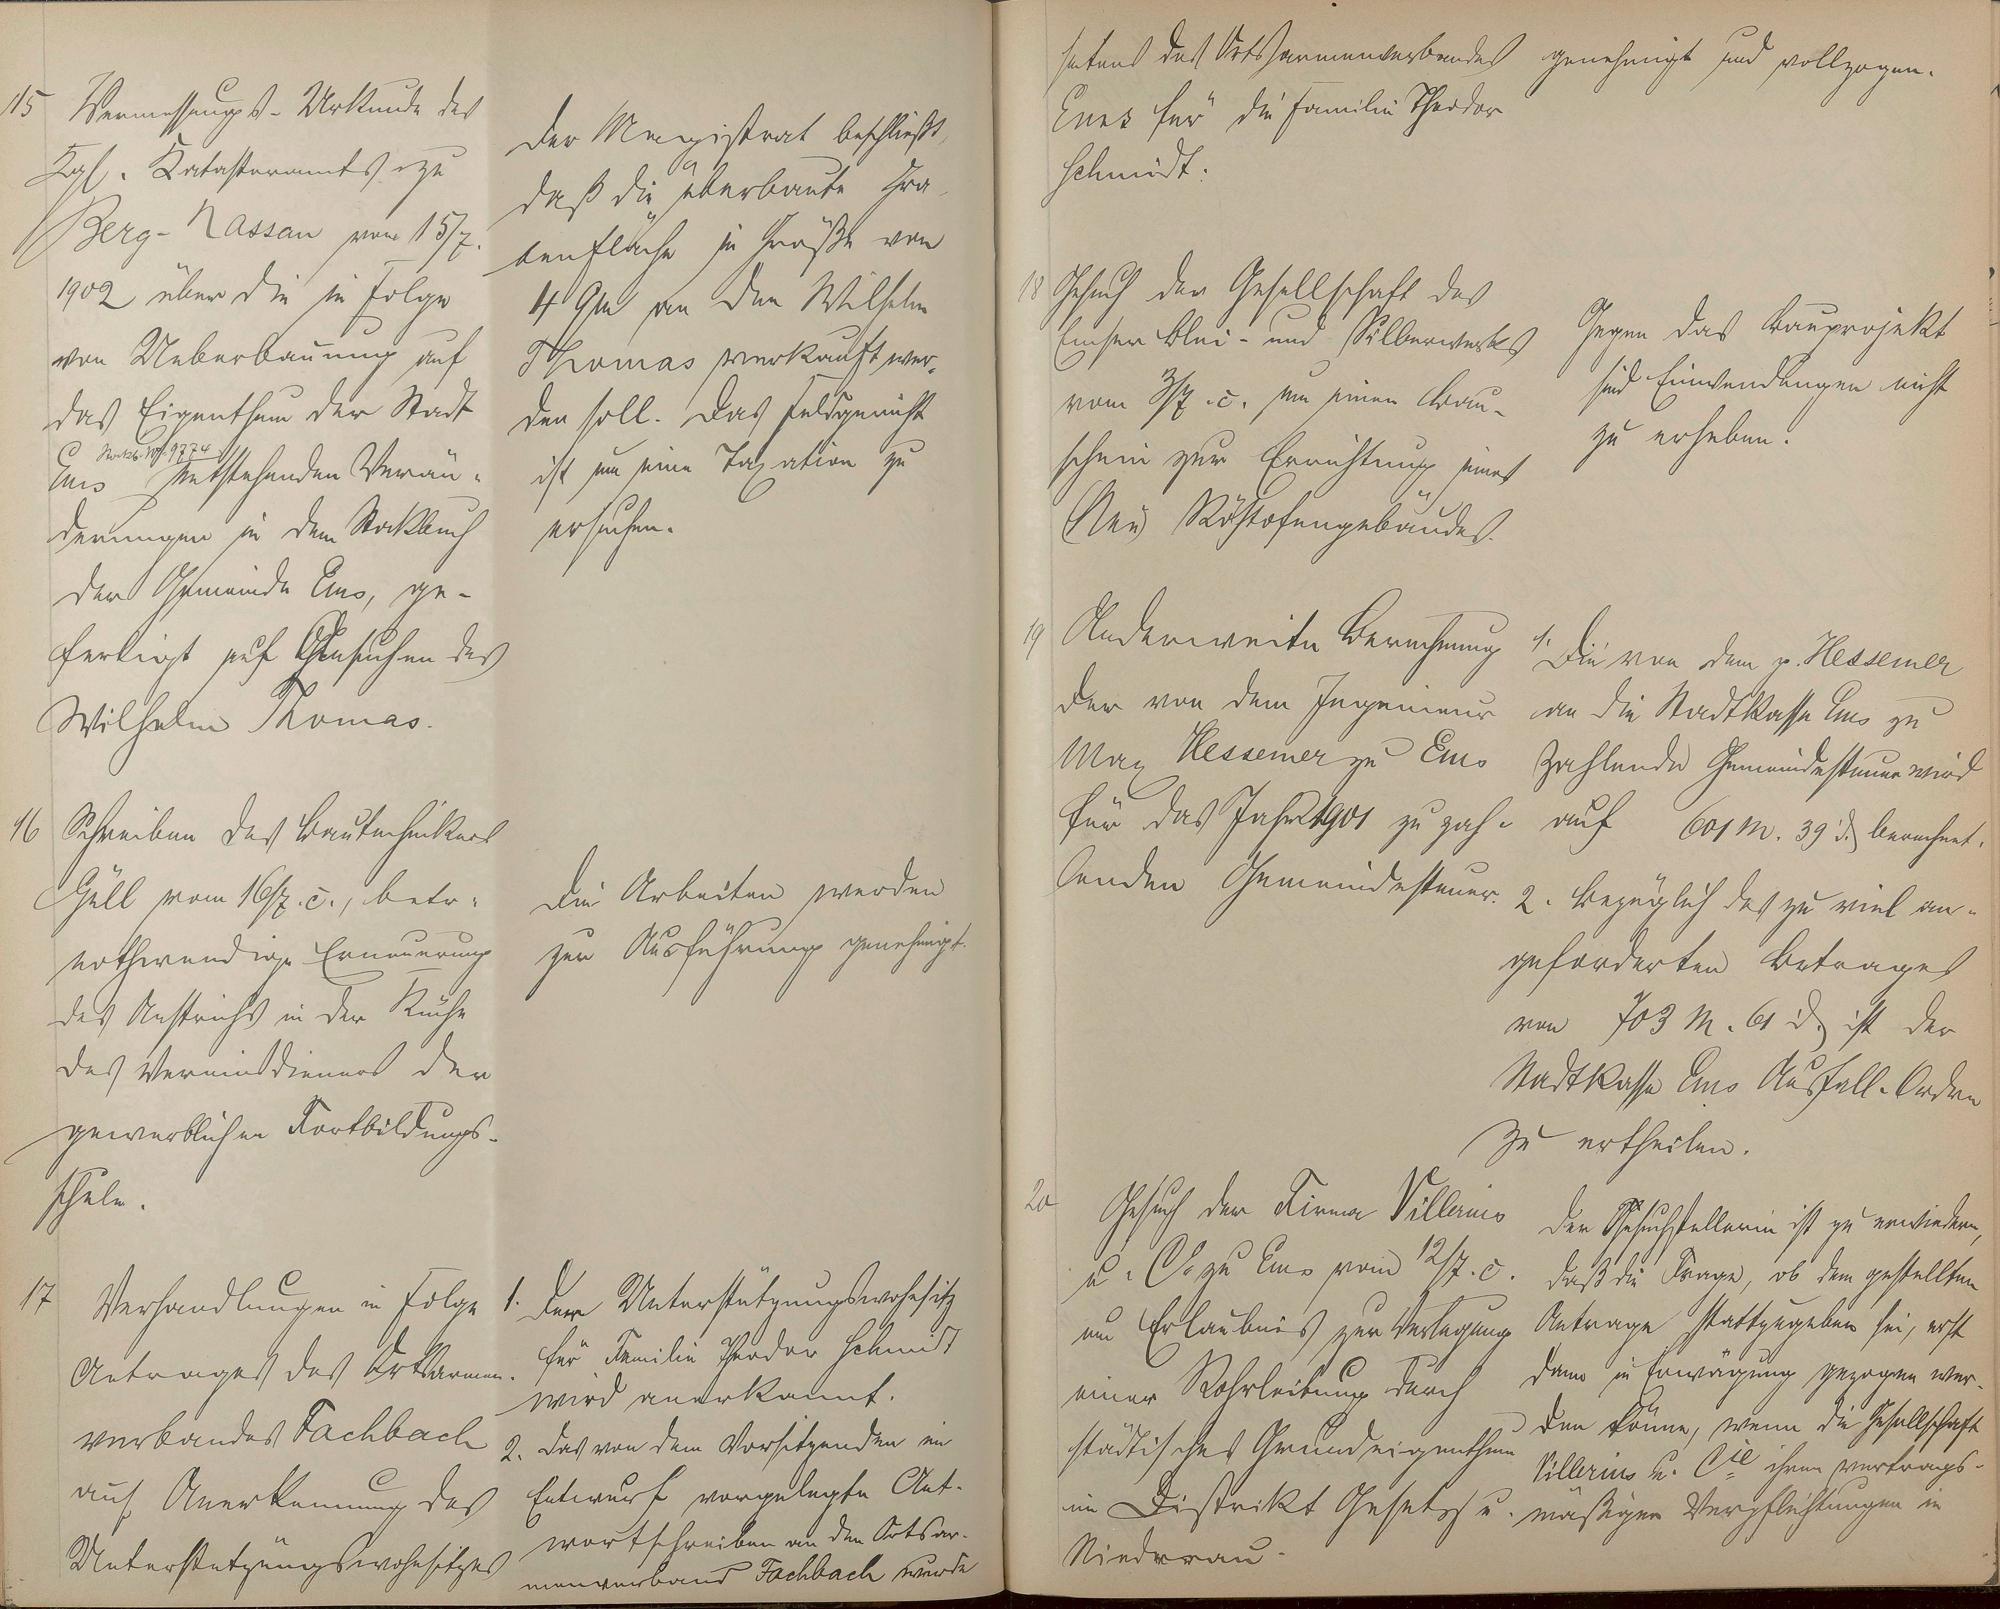 15 Vermessungs-Urkunde des
Kgl. Katasteramts zu
Berg-Nassau vom 15/7.
1902 über die in Folge
von Ueberbauung auf
das Eigenthum der Stadt
Stockb. Nr. 9774
Ems entstehenden Verän-
derungen in dem Stockbuch
der Gemeinde Ems, ge-
fertigt auf Ansuchen des
Wilhelm Thomas.
Der Magistrat beschließt,
daß die überbaute Gra-
benfläche in Größe von
4 qm an den Wilhelm
Thomas verkauft wer-
den soll. Das Feldgericht
ist um eine Taxation zu
ersuchen.
16 Schreiben des Bautechnikers
Güll vom 16/7. c., betr.
nothwendige Erneuerung
des Anstrichs in der Küche
des Vereinsdieners der
gewerblichen Fortbildungs-
schule.
Die Arbeiten werden
zur Ausführung genehmigt.
17 Verhandlungen in Folge
Antrages des Ortsarmen-
verbandes Fachbach
auf Anerkennung des
Unterstützungswohnsitzes
1. Der Unterstützungswohnsitz
für Familie Theodor Schmidt
wird anerkannt.
2. Das von dem Vorsitzenden im
Entwurf vorgelegte Ant-
wortschreiben an den Ortsar-
menverband Fachbach wurde
seitens des Ortsarmenverbandes
Ems für die Familie Theodor
Schmidt.
genehmigt und vollzogen.
18 Gesuch der Gesellschaft des
Emser Blei- und Silberwerks
vom 3/7. c. um einen Bau-
schein zur Errichtung eines
(Neu) Röstofengebäudes.
Gegen das Bauprojekt
sind Einwendungen nicht
zu erheben.
19 Anderweite Berechnung
der von dem Ingenieur
Max Hessemer zu Ems
für das Jahr 1901 zu zah-
lenden Gemeindesteuer.
1. Die von dem p. Hessemer
an die Stadtkasse Ems zu
zahlende Gemeindesteuer wird
auf 601 M. 39 d. berechnet.
2. Bezüglich des zu viel an-
geforderten Betrages
von 703 M. 61 d. ist der
Stadtkasse Ems Ausfall-Ordre
zu ertheilen.
20 Gesuch der Firma Villerius
u. Co zu Ems vom 12/7. c.
um Erlaubnis zur Verlegung
einer Rohrleitung durch
städtisches Grundeigenthum
im Distrikt Gesetz u.
Niederau.
Der Gesuchstellerin ist zu erwiedern,
daß die Frage, ob dem gestellten
Antrage stattzugeben sei, erst
dann in Erwägung gezogen wer-
den könne, wenn die Gesellschaft
Villerius u. Cie ihren vertrags-
mäßigen Verpflichtungen in